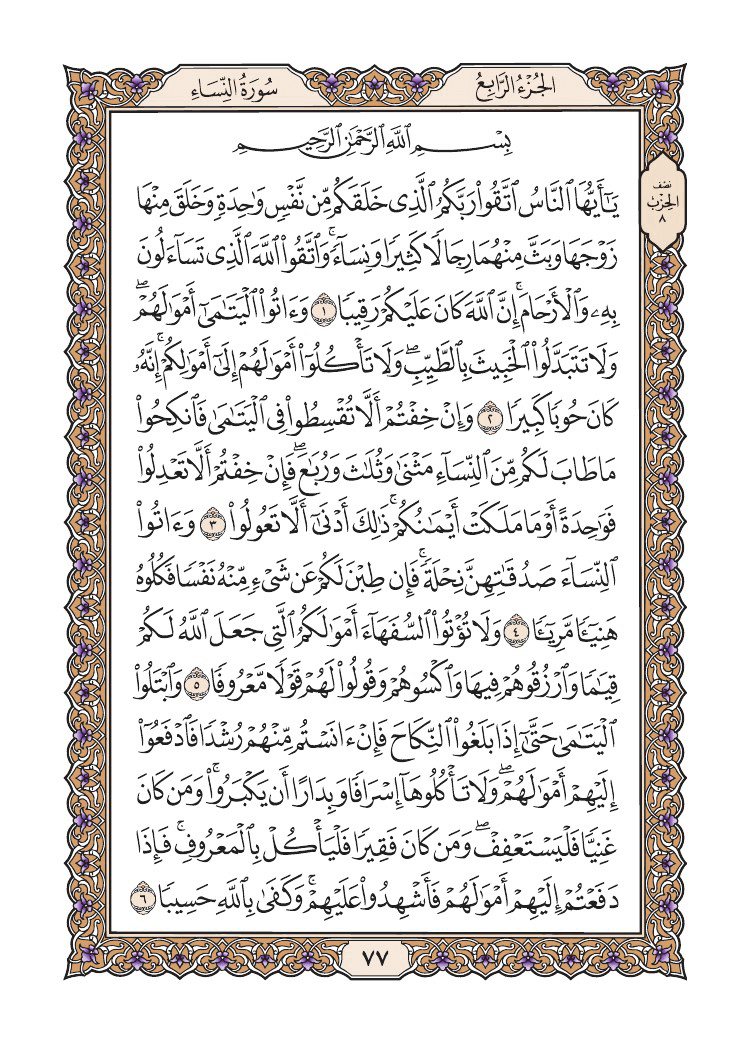 الجُزْءُ الرَّابِعُ
سُورَةُ النِّسَاءِ
نصف
الحِزْب
٨
بِسْمِ ٱللَّهِ ٱلرَّحْمَٰنِ ٱلرَّحِيمِ
يَٰٓأَيُّهَا ٱلنَّاسُ ٱتَّقُوا۟ رَبَّكُمُ ٱلَّذِى خَلَقَكُم مِّن نَّفْسٍ وَٰحِدَةٍ وَخَلَقَ مِنْهَا
زَوْجَهَا وَبَثَّ مِنْهُمَا رِجَالًا كَثِيرًا وَنِسَآءً ۚ وَٱتَّقُوا۟ ٱللَّهَ ٱلَّذِى تَسَآءَلُونَ
بِهِۦ وَٱلْأَرْحَامَ ۚ إِنَّ ٱللَّهَ كَانَ عَلَيْكُمْ رَقِيبًا ١ وَءَاتُوا۟ ٱلْيَتَٰمَىٰٓ أَمْوَٰلَهُمْ ۖ
وَلَا تَتَبَدَّلُوا۟ ٱلْخَبِيثَ بِٱلطَّيِّبِ ۖ وَلَا تَأْكُلُوٓا۟ أَمْوَٰلَهُمْ إِلَىٰٓ أَمْوَٰلِكُمْ ۚ إِنَّهُۥ
كَانَ حُوبًا كَبِيرًا ٢ وَإِنْ خِفْتُمْ أَلَّا تُقْسِطُوا۟ فِى ٱلْيَتَٰمَىٰ فَٱنكِحُوا۟
مَا طَابَ لَكُم مِّنَ ٱلنِّسَآءِ مَثْنَىٰ وَثُلَٰثَ وَرُبَٰعَ ۖ فَإِنْ خِفْتُمْ أَلَّا تَعْدِلُوا۟
فَوَٰحِدَةً أَوْ مَا مَلَكَتْ أَيْمَٰنُكُمْ ۚ ذَٰلِكَ أَدْنَىٰٓ أَلَّا تَعُولُوا۟ ٣ وَءَاتُوا۟
ٱلنِّسَآءَ صَدُقَٰتِهِنَّ نِحْلَةً ۚ فَإِن طِبْنَ لَكُمْ عَن شَىْءٍ مِّنْهُ نَفْسًا فَكُلُوهُ
هَنِيٓـًٔا مَّرِيٓـًٔا ٤ وَلَا تُؤْتُوا۟ ٱلسُّفَهَآءَ أَمْوَٰلَكُمُ ٱلَّتِى جَعَلَ ٱللَّهُ لَكُمْ
قِيَٰمًا وَٱرْزُقُوهُمْ فِيهَا وَٱكْسُوهُمْ وَقُولُوا۟ لَهُمْ قَوْلًا مَّعْرُوفًا ٥ وَٱبْتَلُوا۟
ٱلْيَتَٰمَىٰ حَتَّىٰٓ إِذَا بَلَغُوا۟ ٱلنِّكَاحَ فَإِنْ ءَانَسْتُم مِّنْهُمْ رُشْدًا فَٱدْفَعُوٓا۟
إِلَيْهِمْ أَمْوَٰلَهُمْ ۖ وَلَا تَأْكُلُوهَآ إِسْرَافًا وَبِدَارًا أَن يَكْبَرُوا۟ ۚ وَمَن كَانَ
غَنِيًّا فَلْيَسْتَعْفِفْ ۖ وَمَن كَانَ فَقِيرًا فَلْيَأْكُلْ بِٱلْمَعْرُوفِ ۚ فَإِذَا
دَفَعْتُمْ إِلَيْهِمْ أَمْوَٰلَهُمْ فَأَشْهِدُوا۟ عَلَيْهِمْ ۚ وَكَفَىٰ بِٱللَّهِ حَسِيبًا ٦
٧٧